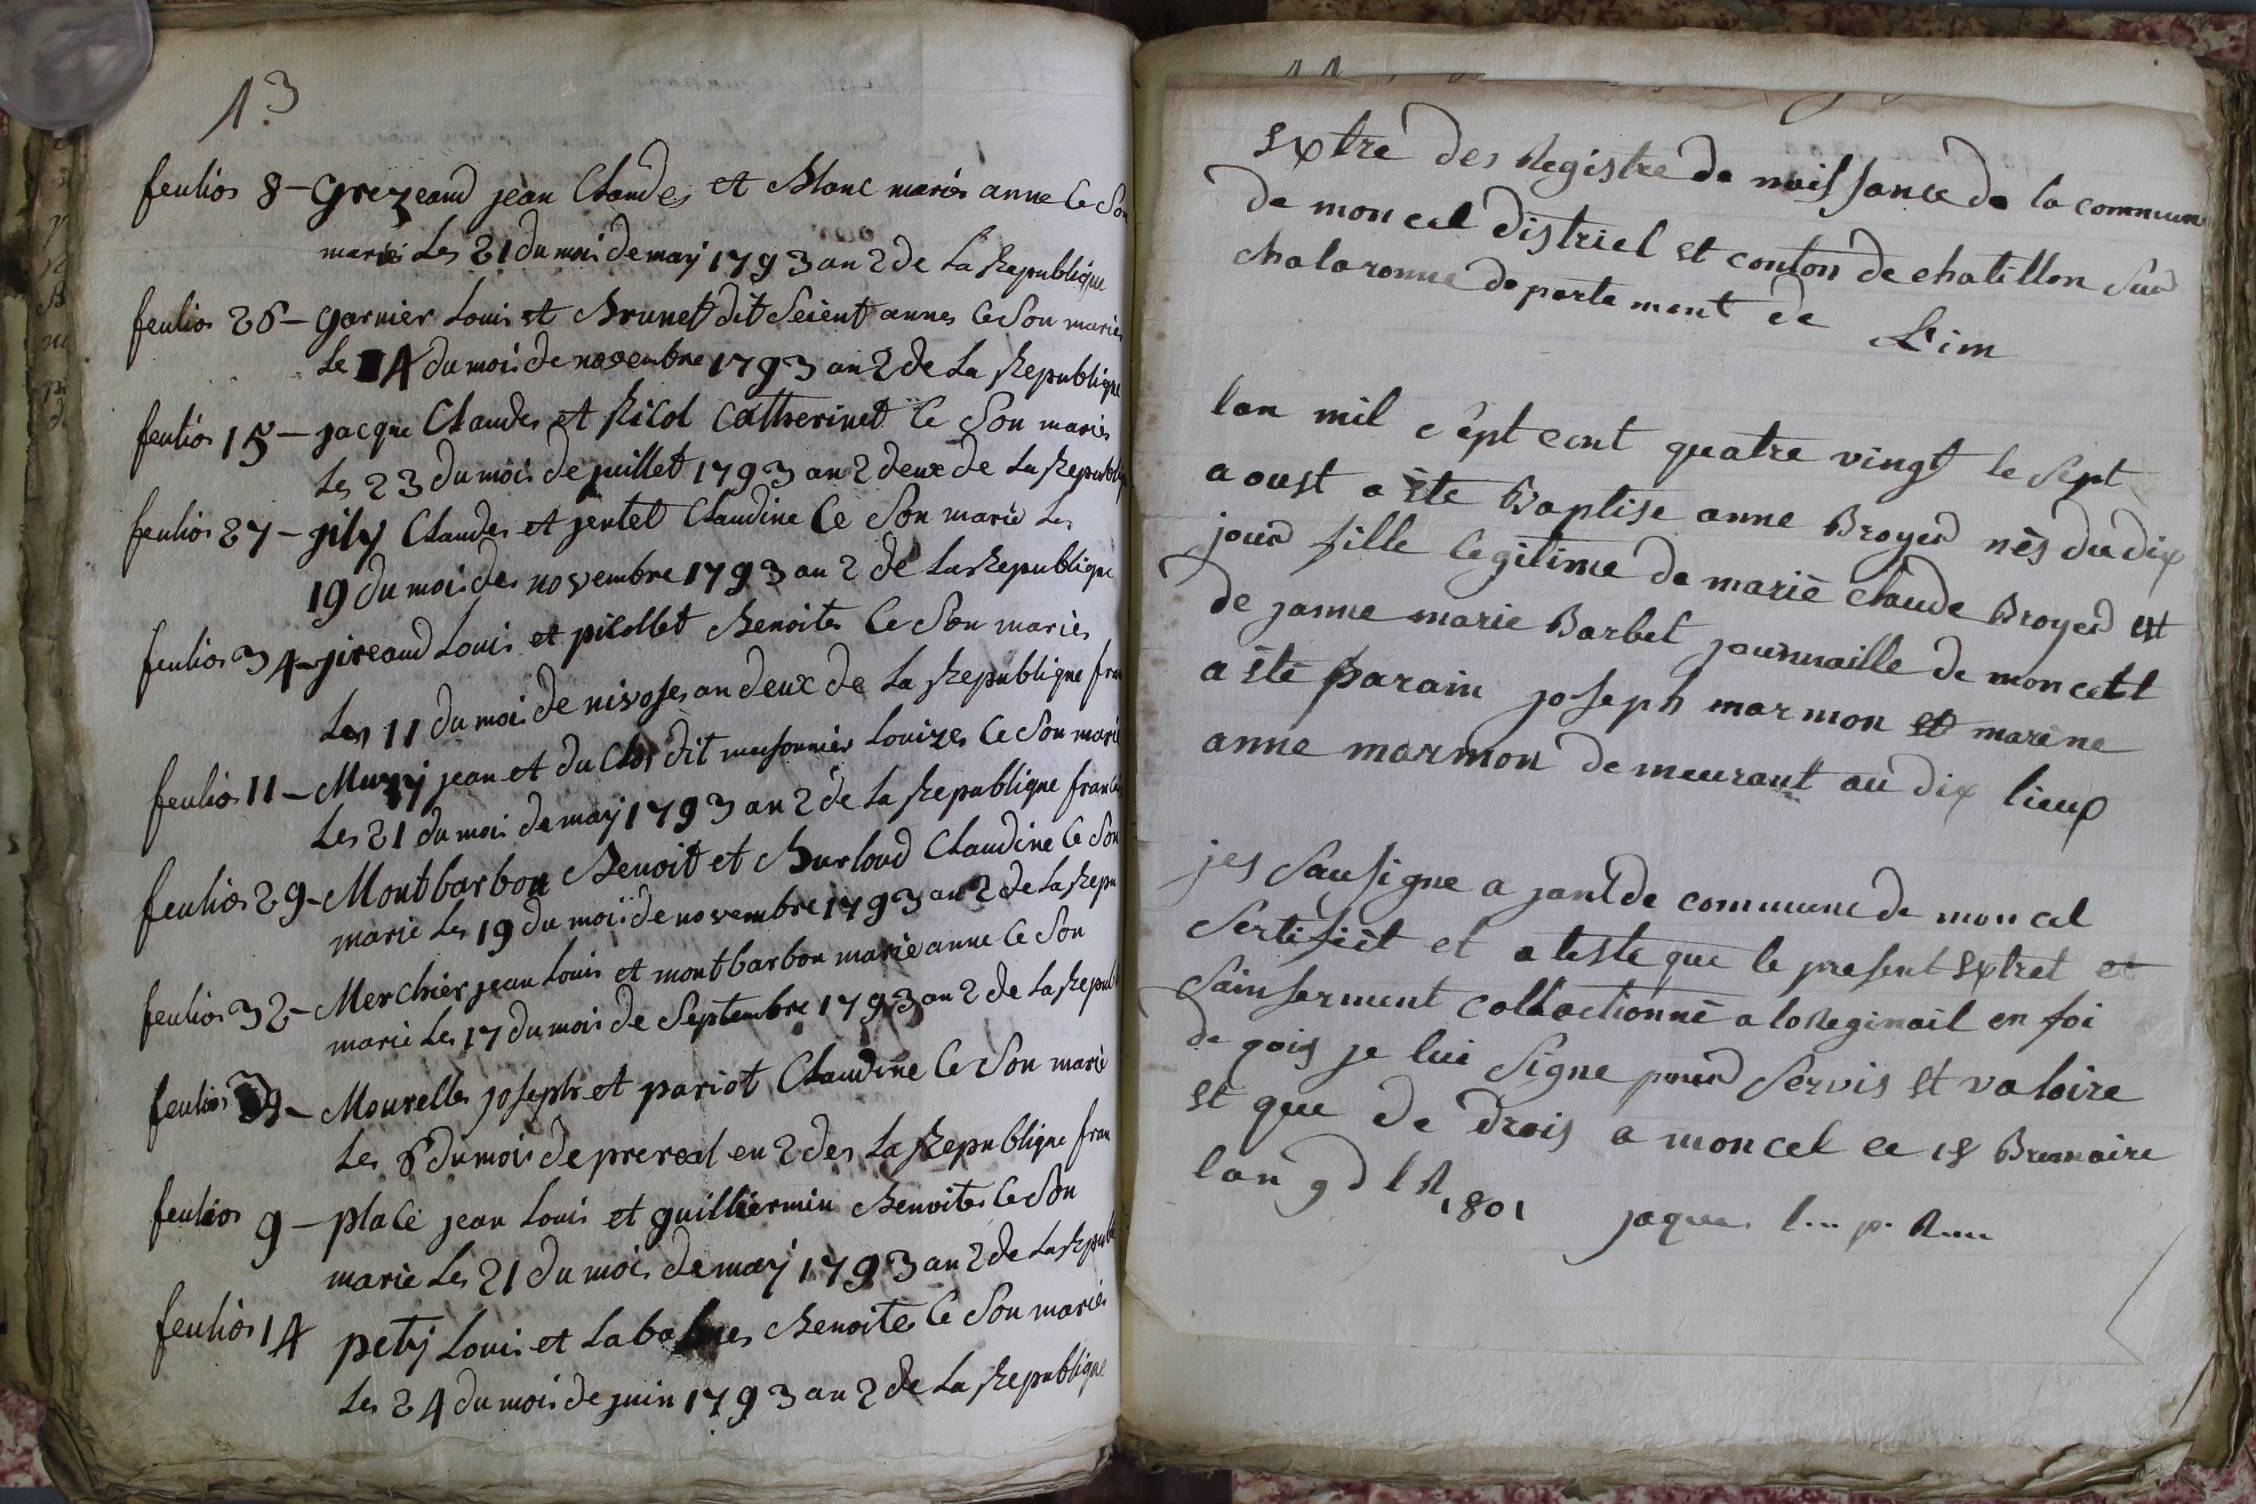 13
feulios 8 - Grezeaud jean Claudes et Blanc marie anne Ce Son
mariés Les 21 du moi de may 1793 an 2 de La Republique
feulios 26 - garnier Louis et Brunet dit Seient annes Ce Son maries
Le 14 du moi de novembre 1793 an 2 de La Republique
feulios 15 - jacque Claudes et Ricol Catherinet Ce Son mariés
Les 23 du moi de juillet 1793 an 2 deux de La Republiq
feulios 27 - gily Claudes et jentet Claudine Ce Son marié Les
19 du moi des novembre 1793 an 2 de La Republique
feulios 34 - jireaud Louis et picollet Benoites Ce Son mariés
Les 11 du moi de nivoses an deux de La Republique fran
feulios 11 - Muzy jean et du Clos dit musonnier Louizes Ce Son marié
Les 21 du moi de may 1793 an 2 de La Republique francai
feulios 29 - Montbarbon Benoit et Burloud Claudine Ce Son
marié Les 19 du moi de novembre 1793 an 2 de La Repu
feulios 32 - Merchier jean Louis et montbarbon marie anne Ce Son
marié Les 17 du moi de Septembre 1793 an 2 de La Republ
feulios 39 - Mourelles joseph et pariot Claudine Ce Son marié
Les 6 du moi de prereal en 2 des La Republique fran
feulios 9 - place jean Louis et guilliermin Benoites Ce Son
marié Les 21 du moi de may 1793 an 2 de La Republ
feulios 14 pety Louis et Labalmes Benoites Ce Son mariés
Les 24 du moi de juin 1793 an 2 de La Republique
Extre des Registre de naissance de la commun
de moncel distriel et conton de chatillon Sur
chalaronne departement de L'im
lan mil cept cent quatre vingt le Sept
aoust a ete Baptise anne Broyer nès du dix
jour fille legitime de marie claude Broyer est
de janne marie Barbet journaille de moncetl
a été parain joseph marmon et marene
anne marmon demeurant au dix lieux
jes Sausigne a jant de commune de moncel
Sertifièt et ateste que le present Extret et
Sainserment collactionné a loReginail en foi
de qois je lui Signe pour Servis et valoire
et que de drois a moncel ce 18 Brumaire
lan 9 d l R 1801 jaque l... p. R....